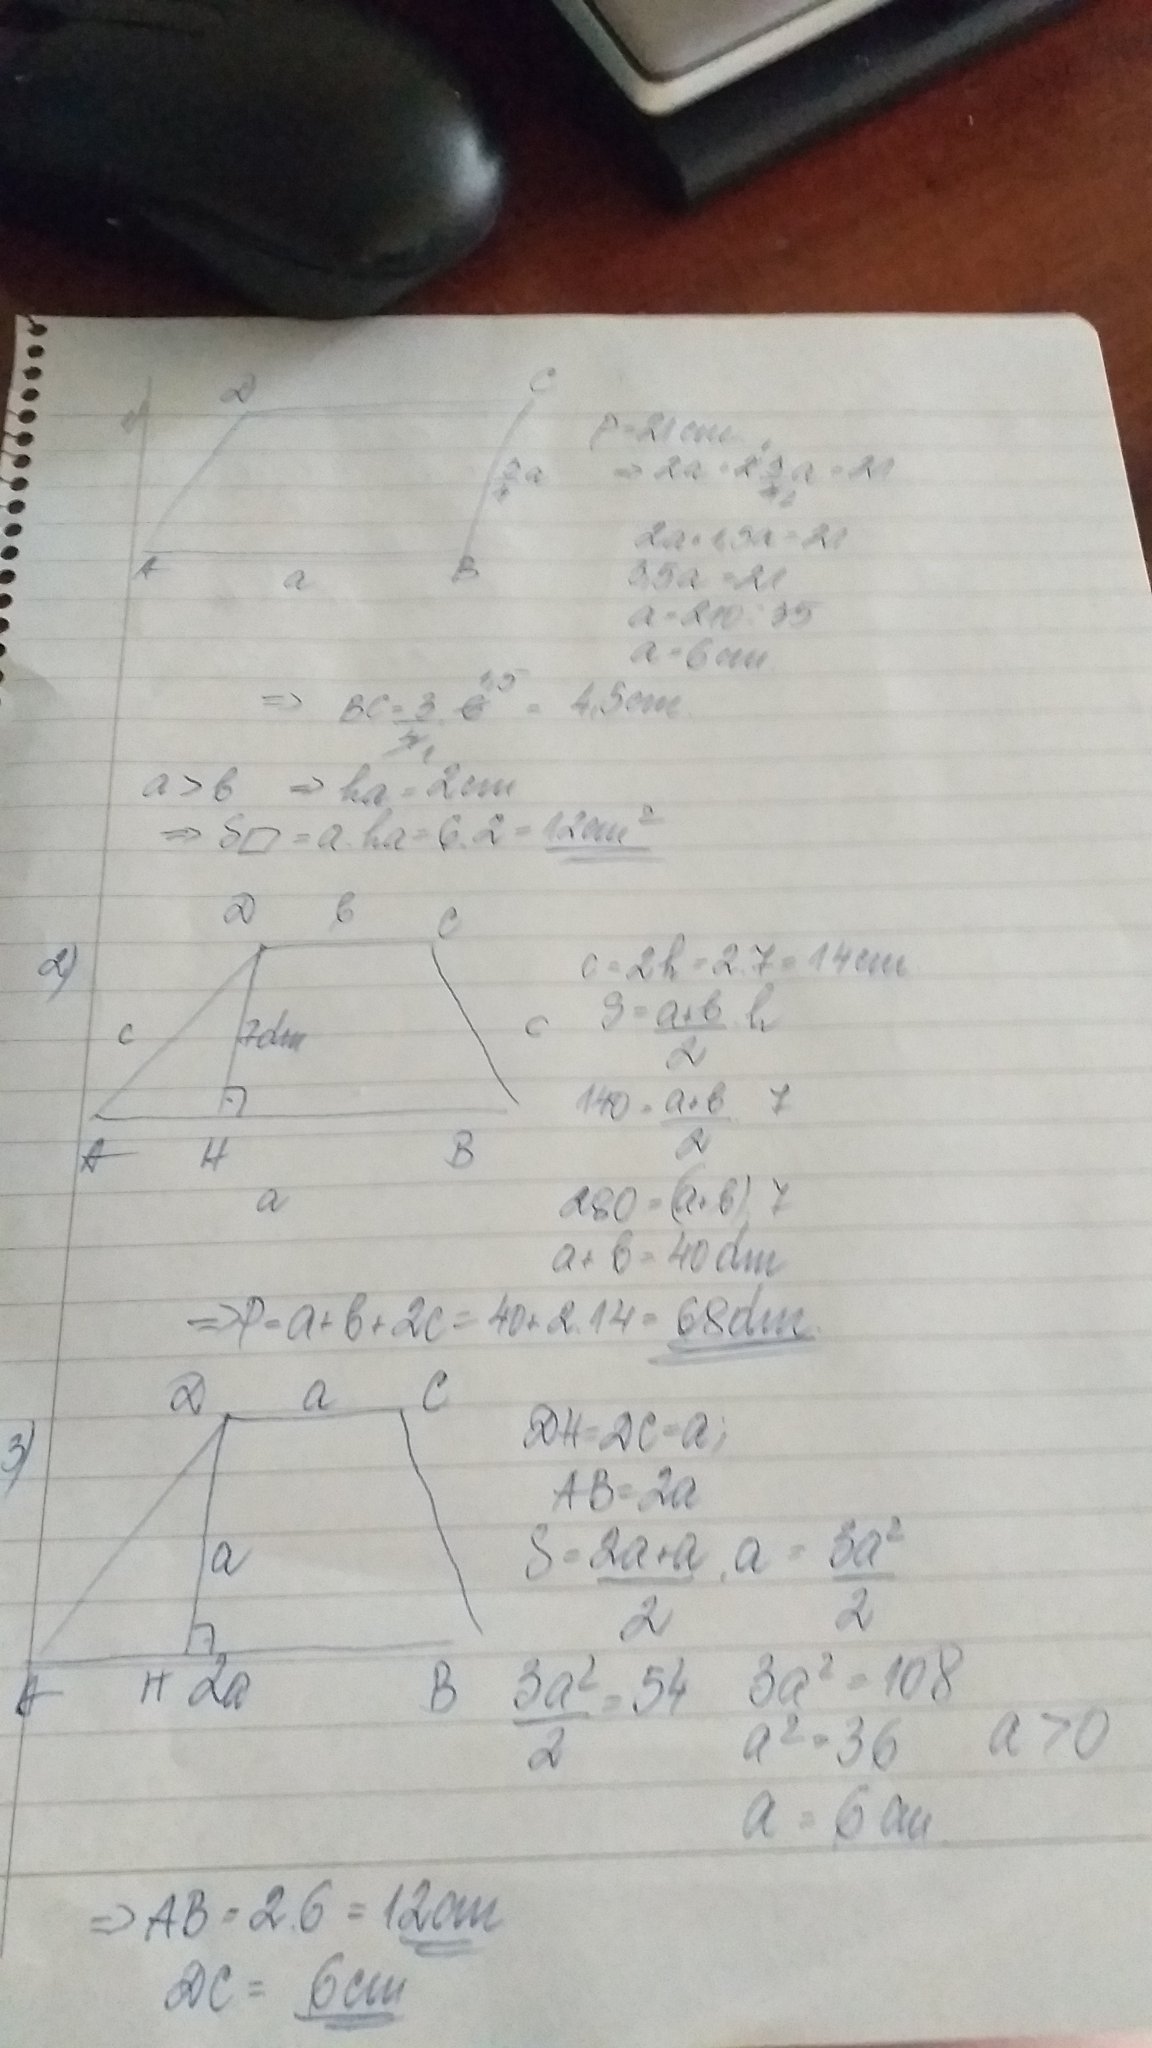 1)
D C
3/4 a
A a B
P=21cm
=> 2a+2·3/4 a=21
2a+1,5a=21
3,5a=21
a=210:35
a=6cm
=> BC=3/4·6 = 4,5cm
a>b => ha=2cm
=> S▱=a.ha=6.2=12cm²
2)
D b C
c 7dm c
A H B
a
c=2h=2.7=14cm
S=a+b/2 . h
140=a+b/2 . 7
280=(a+b).7
a+b=40dm
=>P=a+b+2c=40+2.14=68dm
3)
D a C
a
A H 2a B
DH=DC=a;
AB=2a
S=2a+a/2 . a = 3a²/2
3a²/2=54 3a²=108
a²=36 a>0
a=6cm
=>AB=2.6=12cm
DC= 6cm